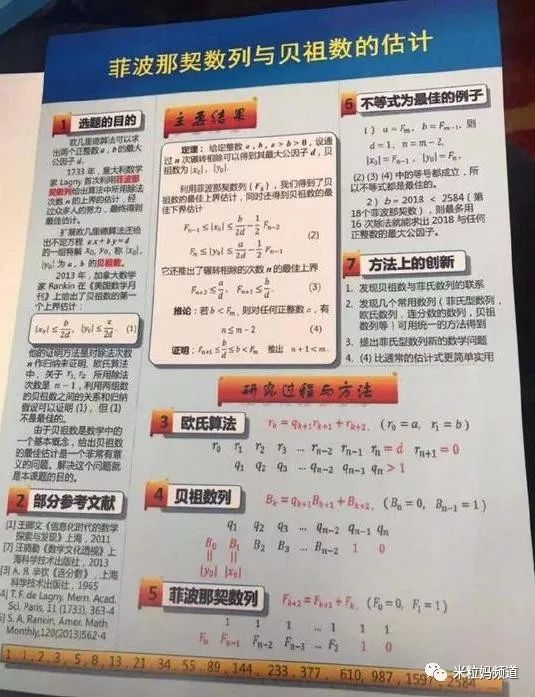 菲波那契数列与贝祖数的估计
1 选题的目的
欧几里德算法可以求
出两个正整数 a , b 的最大
公因子 d .
1733 年，意大利数学
家 Lagny 首次利用菲波那
契数列给出算法中所用除法
次数 n 的上界的估计，经
过众多人的努力，最终得到
最佳估计。
扩展欧几里德算法还给
出不定方程 ax + by = d
的一组特解 x₀, y₀, 称 |x₀|,
|y₀| 为 a , b 的贝祖数。
2013 年，加拿大数学
家 Rankin 在《美国数学月
刊》上给出了贝祖数的第一
个上界估计：
|x₀| ≤ b/2d, |y₀| ≤ a/2d. (1)
他的证明方法是对除法次数
n 作归纳来证明. 欧氏算法
中，关于 r₁, r₂ 所用除法
次数是 n − 1，利用两组数
的贝祖数之间的关系和归纳
假设可以证明 (1)，但 (1)
不是最佳的。
由于贝祖数是数学中的
一个基本概念，给出贝祖数
的最佳估计是一个非常有意
义的问题。解决这个问题就
是本课题的目的。
2 部分参考文献
[1] 王卿文《信息化时代的数学
探索与发现》上海，2011
[2] 汪晓勤《数学文化透视》上
海科学技术出版社，2013
[3] А. Я. 辛钦《连分数》，上海
科学技术出版社，1965
[4] T. F. de Lagny, Mem. Acad.
Sci. Paris, 11 (1733), 363-4
[5] S. A. Rankin, Amer. Math.
Monthly,120(2013)562-4
主要结果
定理：给定整数 a , b , a > b > 0，设通
过 n 次辗转相除可以得到其最大公因子 d，贝
祖数为 |x₀|, |y₀|.
利用菲波那契数列 {Fₖ}，我们得到了贝
祖数的最佳上界估计，同时还得到贝祖数的最
佳下界估计
Fₙ₋₁ ≤ |x₀| ≤ b/2d − 1/2 Fₙ₋₂
(2)
Fₙ ≤ |y₀| ≤ a/2d − 1/2 Fₙ₋₁
它还推出了辗转相除的次数 n 的最佳上界
Fₙ₊₂ ≤ a/d, Fₙ₊₁ ≤ b/d. (3)
推论：若 b < Fₘ，则对任何正整数 a，有
n ≤ m − 2 (4)
证明：Fₙ₊₁ ≤ b/d ≤ b < Fₘ 推出 n + 1 < m.
6 不等式为最佳的例子
1） a = Fₘ, b = Fₘ₋₁, 则
d = 1, n = m − 2,
|x₀| = Fₙ₋₁, |y₀| = Fₙ.
(2) (3) (4) 中的等号都成立，所
以不等式都是最佳的。
2）b = 2018 < 2584（第
18个菲波那契数），则最多用
16 次除法就能求出 2018 与任何
正整数的最大公因子。
7 方法上的创新
1. 发现贝祖数与菲氏数列的联系
2. 发现几个常用数列（菲氏型数列，
欧氏数列，连分数的数列，贝祖
数列等）可用统一的方法得到
3. 提出菲氏型数列新的数学问题
4. (4) 比通常的估计式更简单实用
研究过程与方法
3 欧氏算法 rₖ = qₖ₊₁rₖ₊₁ + rₖ₊₂, (r₀ = a, r₁ = b)
r₀ r₁ r₂ r₃ … rₙ₋₂ rₙ₋₁ rₙ = d rₙ₊₁ = 0
q₁ q₂ q₃ … qₙ₋₂ qₙ₋₁ qₙ > 1
4 贝祖数列 Bₖ = qₖ₊₁Bₖ₊₁ + Bₖ₊₂, (Bₙ = 0, Bₙ₋₁ = 1)
q₁ q₂ q₃ … qₙ₋₂ qₙ₋₁ qₙ
B₀ B₁ B₂ B₃ … Bₙ₋₂ 1 0
|| ||
|y₀| |x₀|
5 菲波那契数列 Fₖ₊₂ = Fₖ₊₁ + Fₖ, (F₀ = 0, F₁ = 1)
1 1 1 … 1 1 1
Fₙ Fₙ₋₁ Fₙ₋₂ Fₙ₋₃ … F₂ 1 0
1, 1, 2, 3, 5, 8, 13, 21, 34, 55, 89, 144, 233, 377, 610, 987, 1597, 2584
米粒妈频道